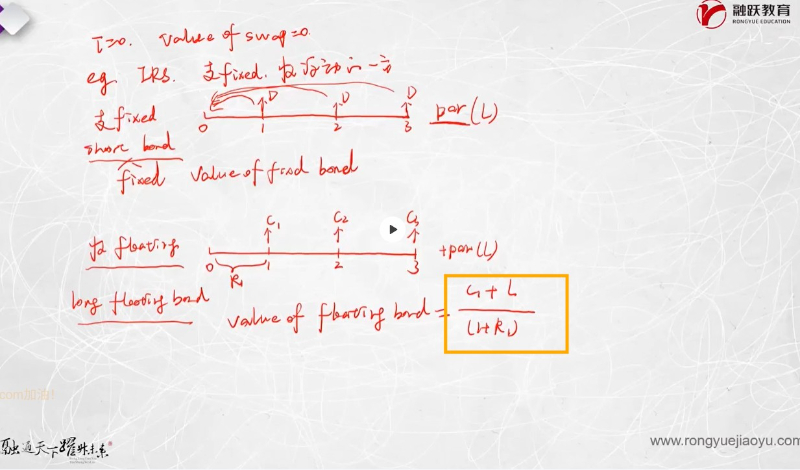 融跃教育
RONGYUE EDUCATION
T=0. value of swap=0.
eg. IRS. 支fixed. 收浮动的一方
D D D
支fixed 0 1 2 3 par (L)
short bond
fixed value of fixed bond
C1 C2 C3
收 floating 0 1 2 3 +par(L)
R1
long floating bond
value of floating bond = C1+L
(1+R1)
.com加油!
融通天下 耀跃未来
www.rongyuejiaoyu.com